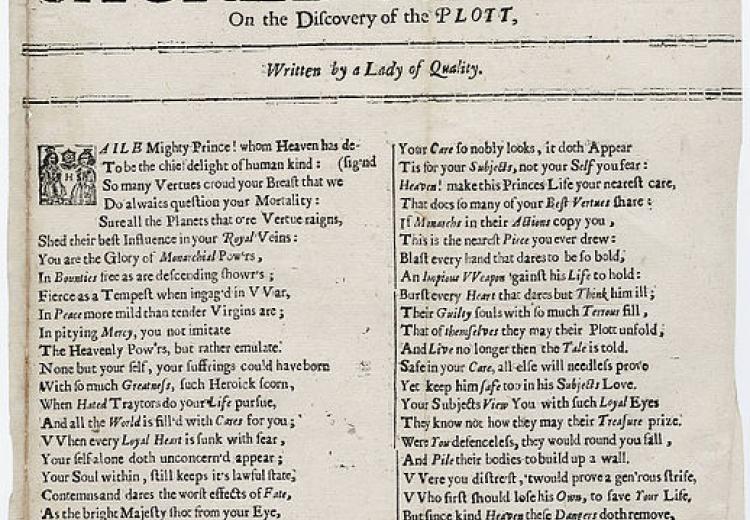 On the Discovery of the PLOTT,
Written by a Lady of Quality.
HAILE Mighty Prince! whom Heaven has de-
To be the chief delight of human kind: (sign'd
So many Vertues croud your Breast that we
Do alwaies question your Mortality:
Sure all the Planets that o're Vertue raigns,
Shed their best Influence in your Royal Veins:
You are the Glory of Monarchial Pow'rs,
In Bounties free as are descending show'rs;
Fierce as a Tempest when ingag'd in VVar,
In Peace more mild than tender Virgins are;
In pitying Mercy, you not imitate
The Heavenly Pow'rs, but rather emulate.
None but your self, your suffrings could have born
With so much Greatness, such Heroick scorn,
When Hated Traytors do your Life pursue,
And all the World is fill'd with Cares for you;
VVhen every Loyal Heart is sunk with fear,
Your self alone doth unconcern'd appear;
Your Soul within, still keeps it's lawful state,
Contemns and dares the worst effects of Fate,
As the bright Majesty shot from your Eye,
Your Care so nobly looks, it doth Appear
Tis for your Subjects, not your Self you fear:
Heaven! make this Princes Life your nearest care,
That does so many of your Best Vertues share:
If Monarchs in their Actions copy you,
This is the nearest Piece you ever drew:
Blast every hand that dares to be so bold,
An Impious VVeapon 'gainst his Life to hold:
Burst every Heart that dares but Think him ill;
Their Guilty souls with so much Terrour fill,
That of themselves they may their Plott unfold,
And Live no longer then the Tale is told.
Safe in your Care, all else will needless prove
Yet keep him safe too in his Subjects Love.
Your Subjects View You with such Loyal Eyes
They know not how they may their Treasure prize.
Were You defenceless, they would round you fall,
And Pile their bodies to build up a wall.
VVere you distrest, 'twould prove a gen'rous strife,
VVho first should lose his Own, to save Your Life,
But since kind Heaven these Dangers doth remove,